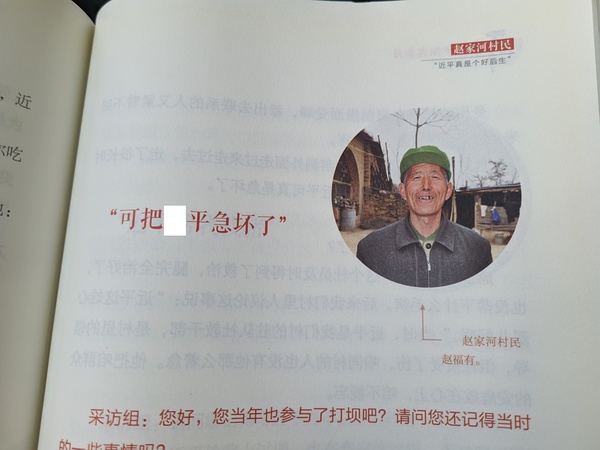 赵家河村民
“近平真是个好后生”
，近
吃
：
“可把 平急坏了”
赵家河村民
赵福有。
采访组：您好，您当年也参与了打坝吧？请问您还记得当时
的一些事情吗？